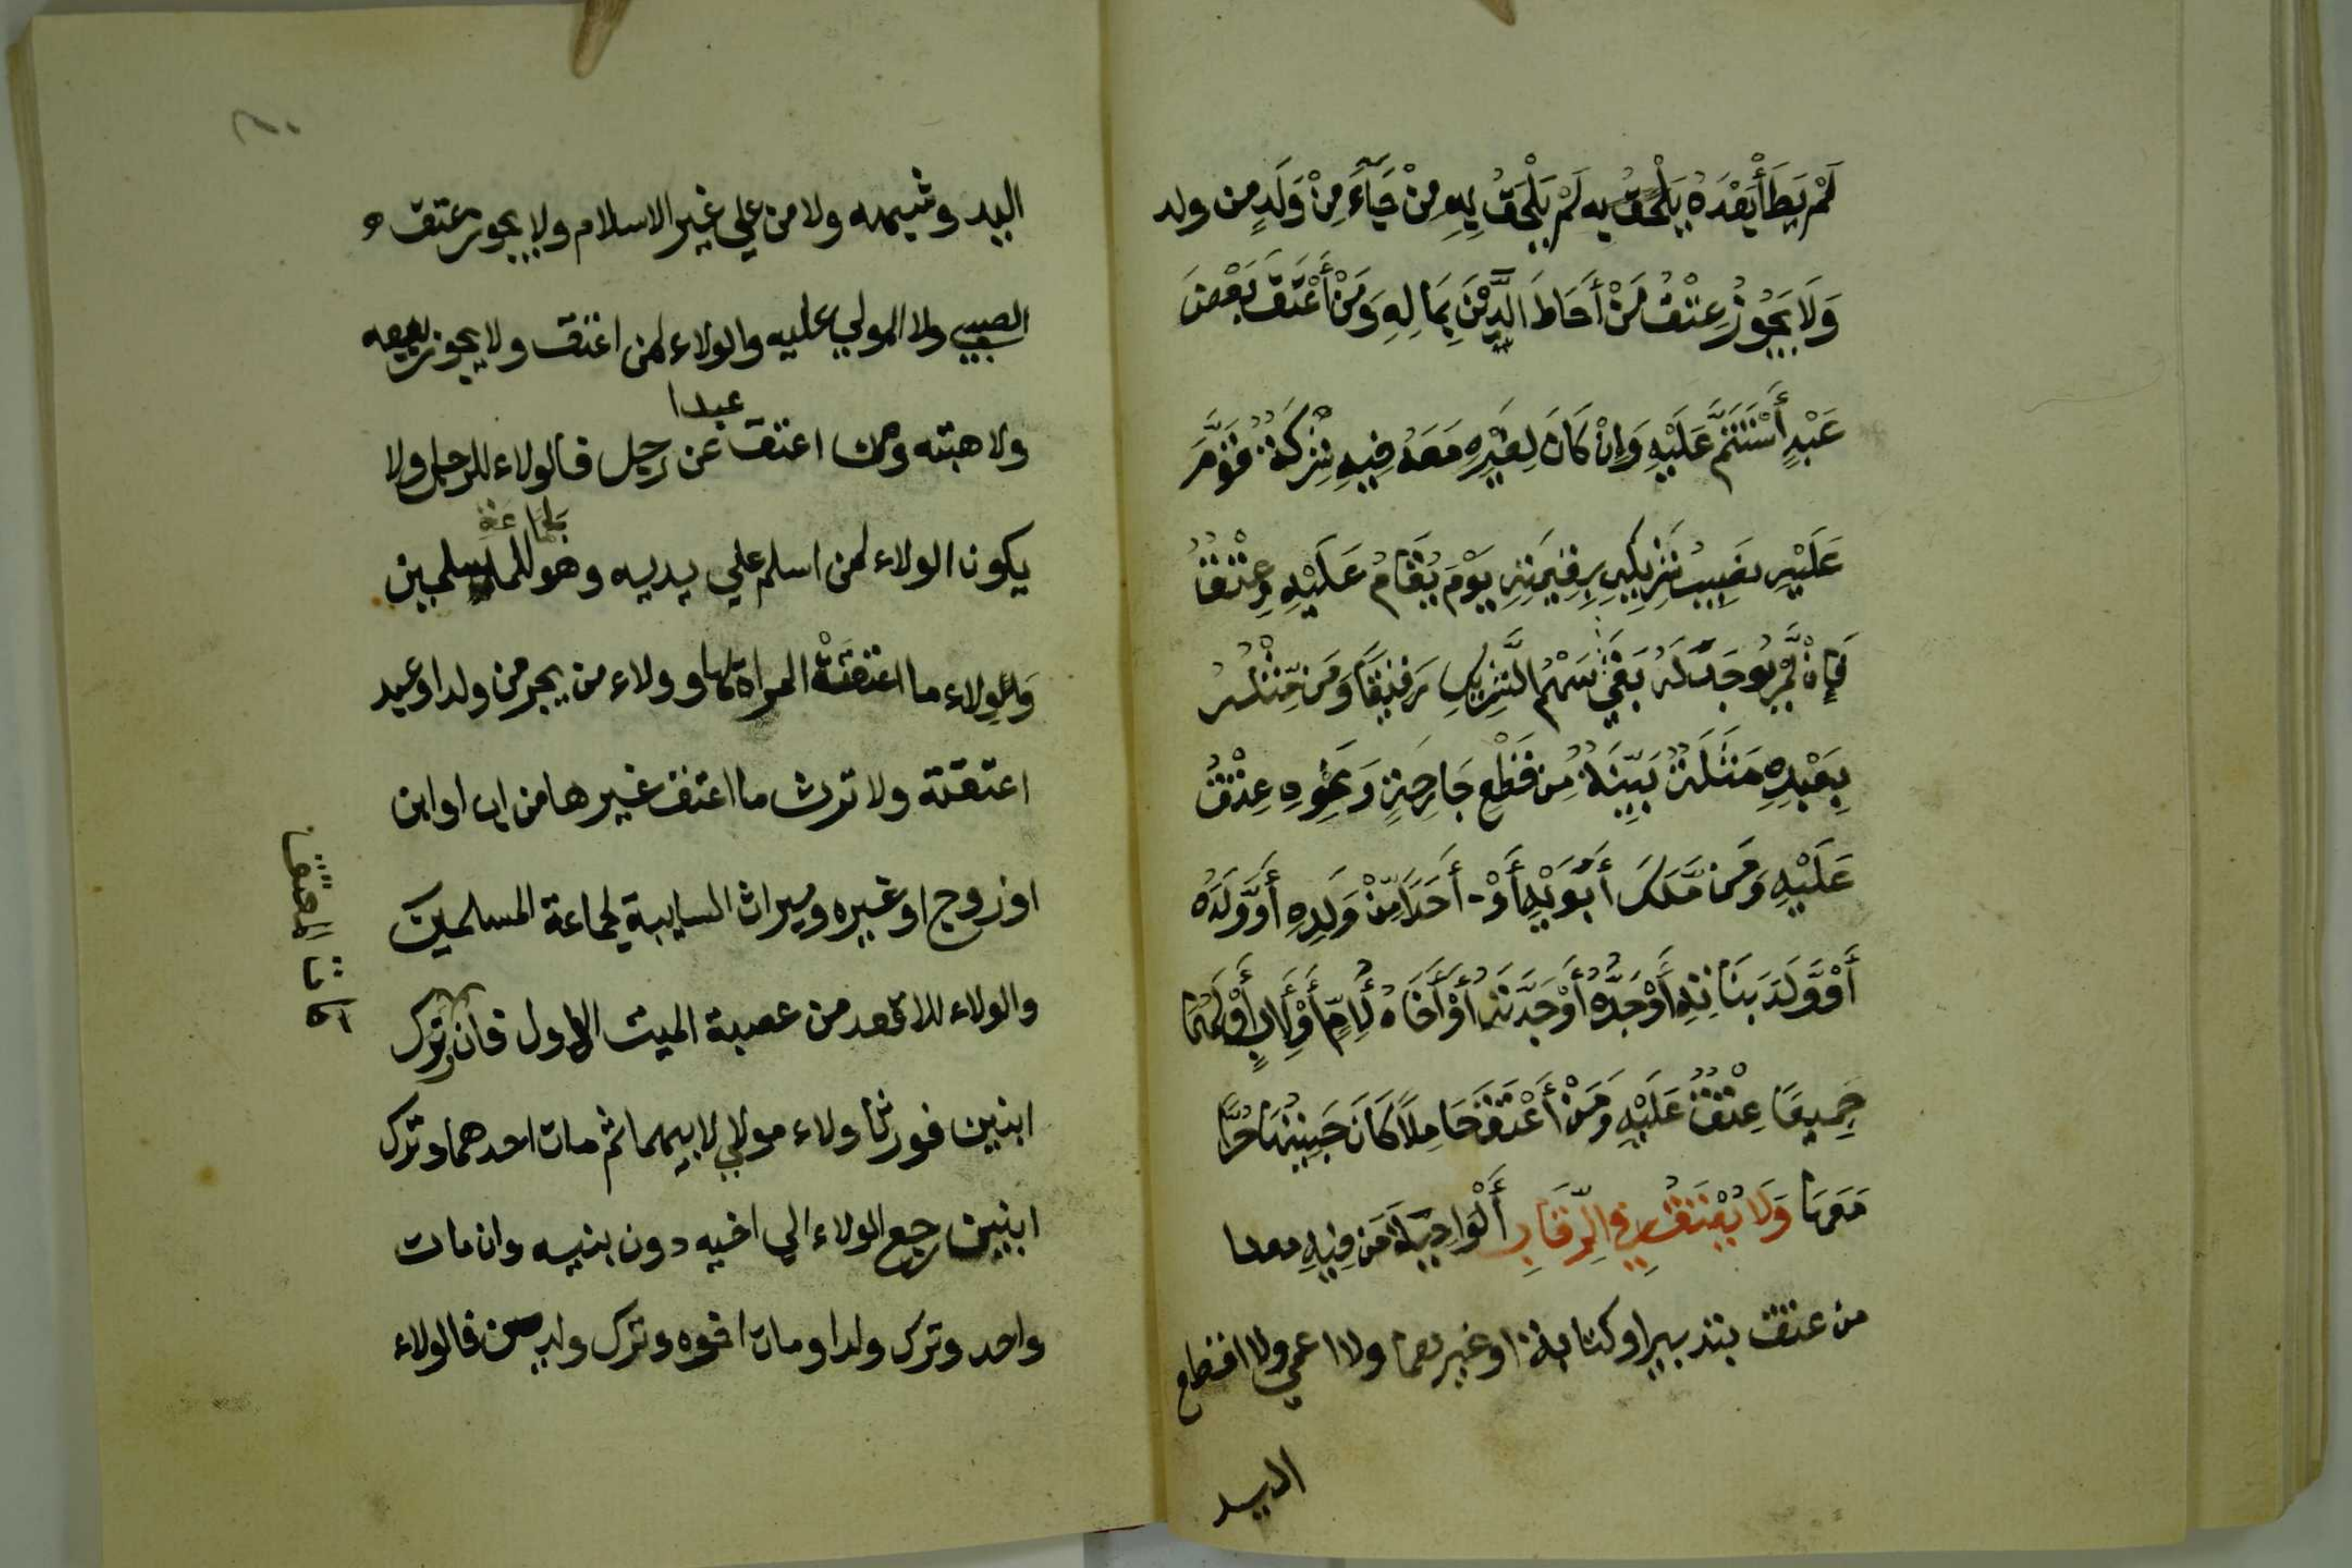 لَمْ يَطَأْ بَعْدَهُ يَلْحَقُ بِهِ لَمْ يَلْحَقُ بِهِ مِنْ جَآءَ مِنْ وَلَدٍ من ولد
وَلَا يَجُوزُ عِتْقُ مَنْ أَحَاطَ الدَّيْنَ بِمَالِهِ وَمَنْ أَعْتَقَ بَعْضَ
عَبْدٍ أُسْتَتَمَّ عَلَيْهِ وَإِنْ كَانَ لِغَيْرِهِ مَعَهُ فِيهِ شِرْكَةٌ قُوِّمَ
عَلَيْهِ نَصِيبُ شَرِيكِهِ بِقِيمَتِهِ يَوْمَ يُقَامُ عَلَيْهِ وَعِتْقُ
فَإِنْ لَّمْ يُوجَدْ لَهُ بَقِيَ سَهْمُ الشَّرِيكِ رَقِيقًا وَمَن مَّثَّلَ
بِعَبْدِهِ مَثَلَةً بَيِّنَةً مِن قَطْعِ جَارِحَةٍ وَنَحْوِهِ عِتْقُ
عَلَيْهِ وَمَن مَّلَكَ أَبَوَيْهِ أَوْ أَحَدًا مِّنْ وَلَدِهِ أَوْ وَلَدَهُ
أَوْ وَلَدَ بَنَاتِهِ أَوْ جَدُّهُ أَوْ جَدَّتَهُ أَوْ أَخَاهُ لِأُمٍّ أَوْ لِأَبٍ أَوْ لَهُمَا
جَمِيعًا عِتْقُ عَلَيْهِ وَمَنْ أَعْتَقَ حَامِلًا كَانَ جَنِينُهَا حُرًّا
مَعَهَا وَلَا يُعْتَقُ فِي الرِّقَابِ أَلْوَاجِبَةُ مَن فِيهِ معنا
من عتق بتدبير او كتابة او غيرهما ولا اعمي ولا اقطع
اليد
اليد وشبهه ولا من علي غير الاسلام ولا يجوز عتق ه
الصبي ولا المولي عليه والولاء لمن اعتق ولا يجوز بيعه
ولا هبته ومن اعتق عبدا عن رجل فالولاء للرجل ولا
يكون الولاء لمن اسلم علي يديه وهو لجماعة المسلمين
وَالولاء ما اعتقتْ المراة لها وولاء من يجر من ولد او عبد
اعتقتة ولا ترث ما اعتق غيرها من اب او ابن
او زوج او غيره وميراث السايبة لجماعة المسلمين
والولاء للاقعد من عصبة الميت الاول فان ترك
ابنين فورثا ولاء مولي لابيهما ثم مات احدهما وترك
ابنين رجع الولاء الي اخيه دون بنيه وان مات
واحد وترك ولدا ومات اخوه وترك ولدين فالولاء